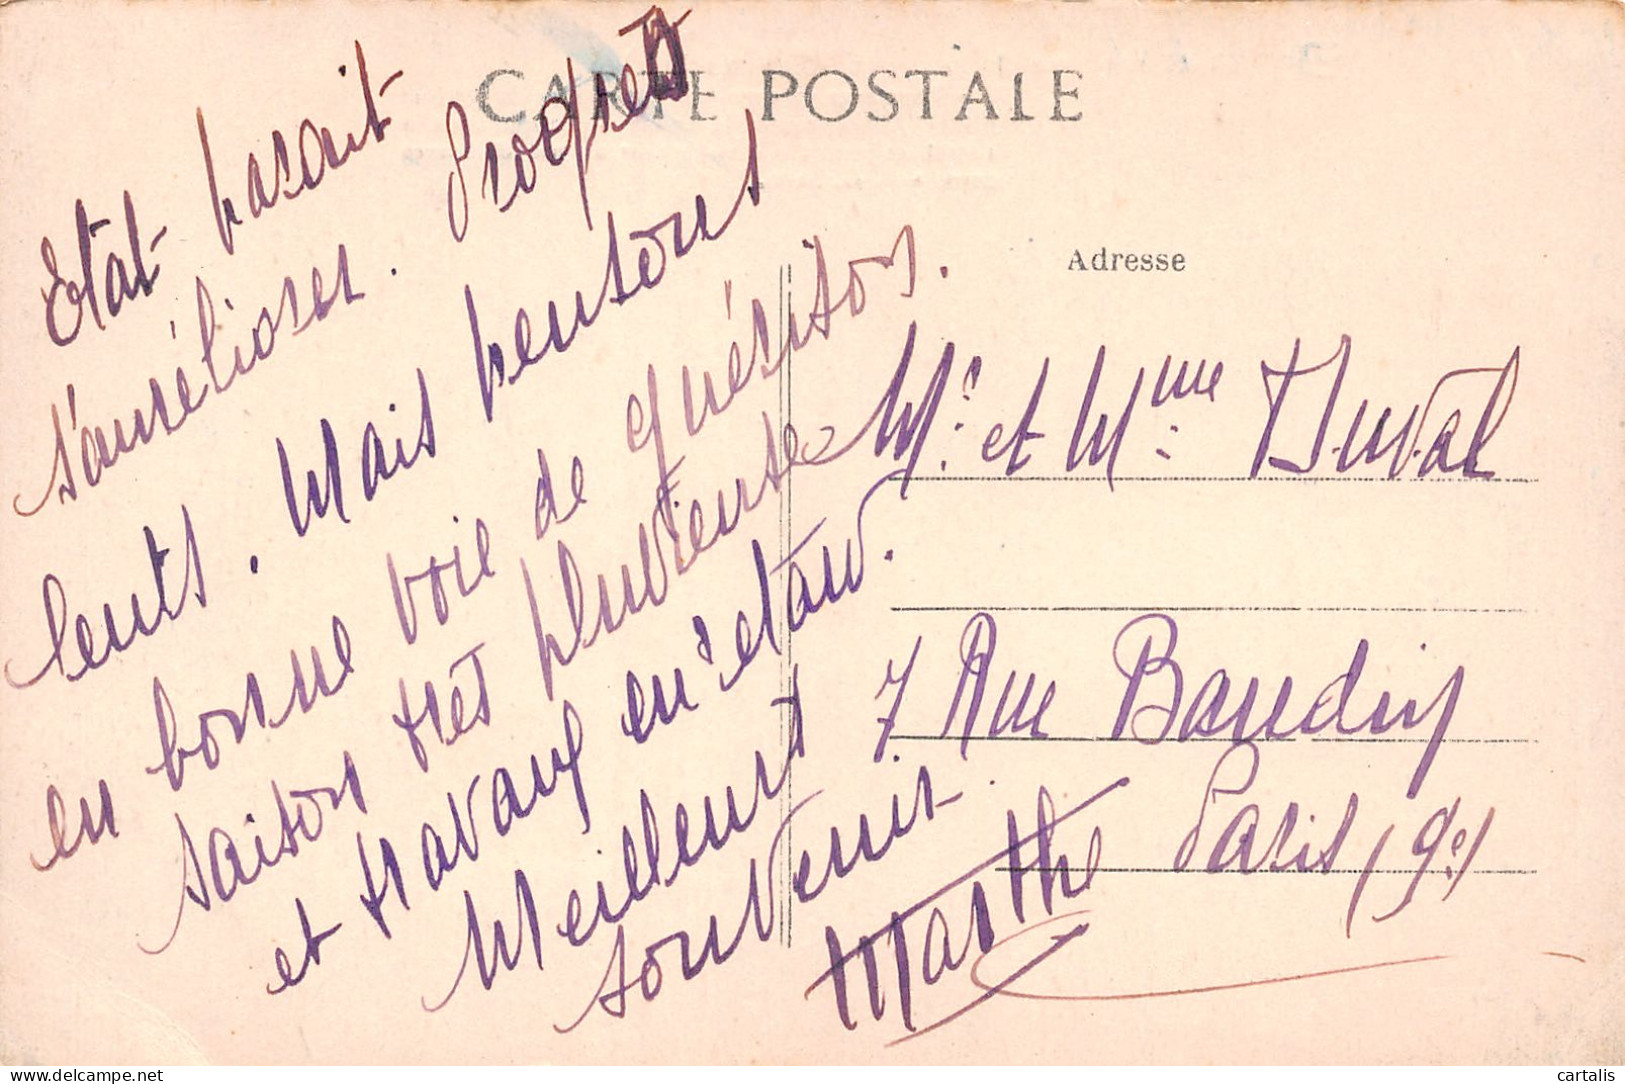 CARTE POSTALE
Etat parait
s'améliorer. Progrès
lents. Mais pensons
en bonne voie de guérison.
Saison très pluvieuse
et travaux en retard.
Meilleurs
souvenirs.
Marthe
Adresse
Mr. et Mme Duval
7 Rue Baudin
Paris (9e)
delcampe.net
cartalis